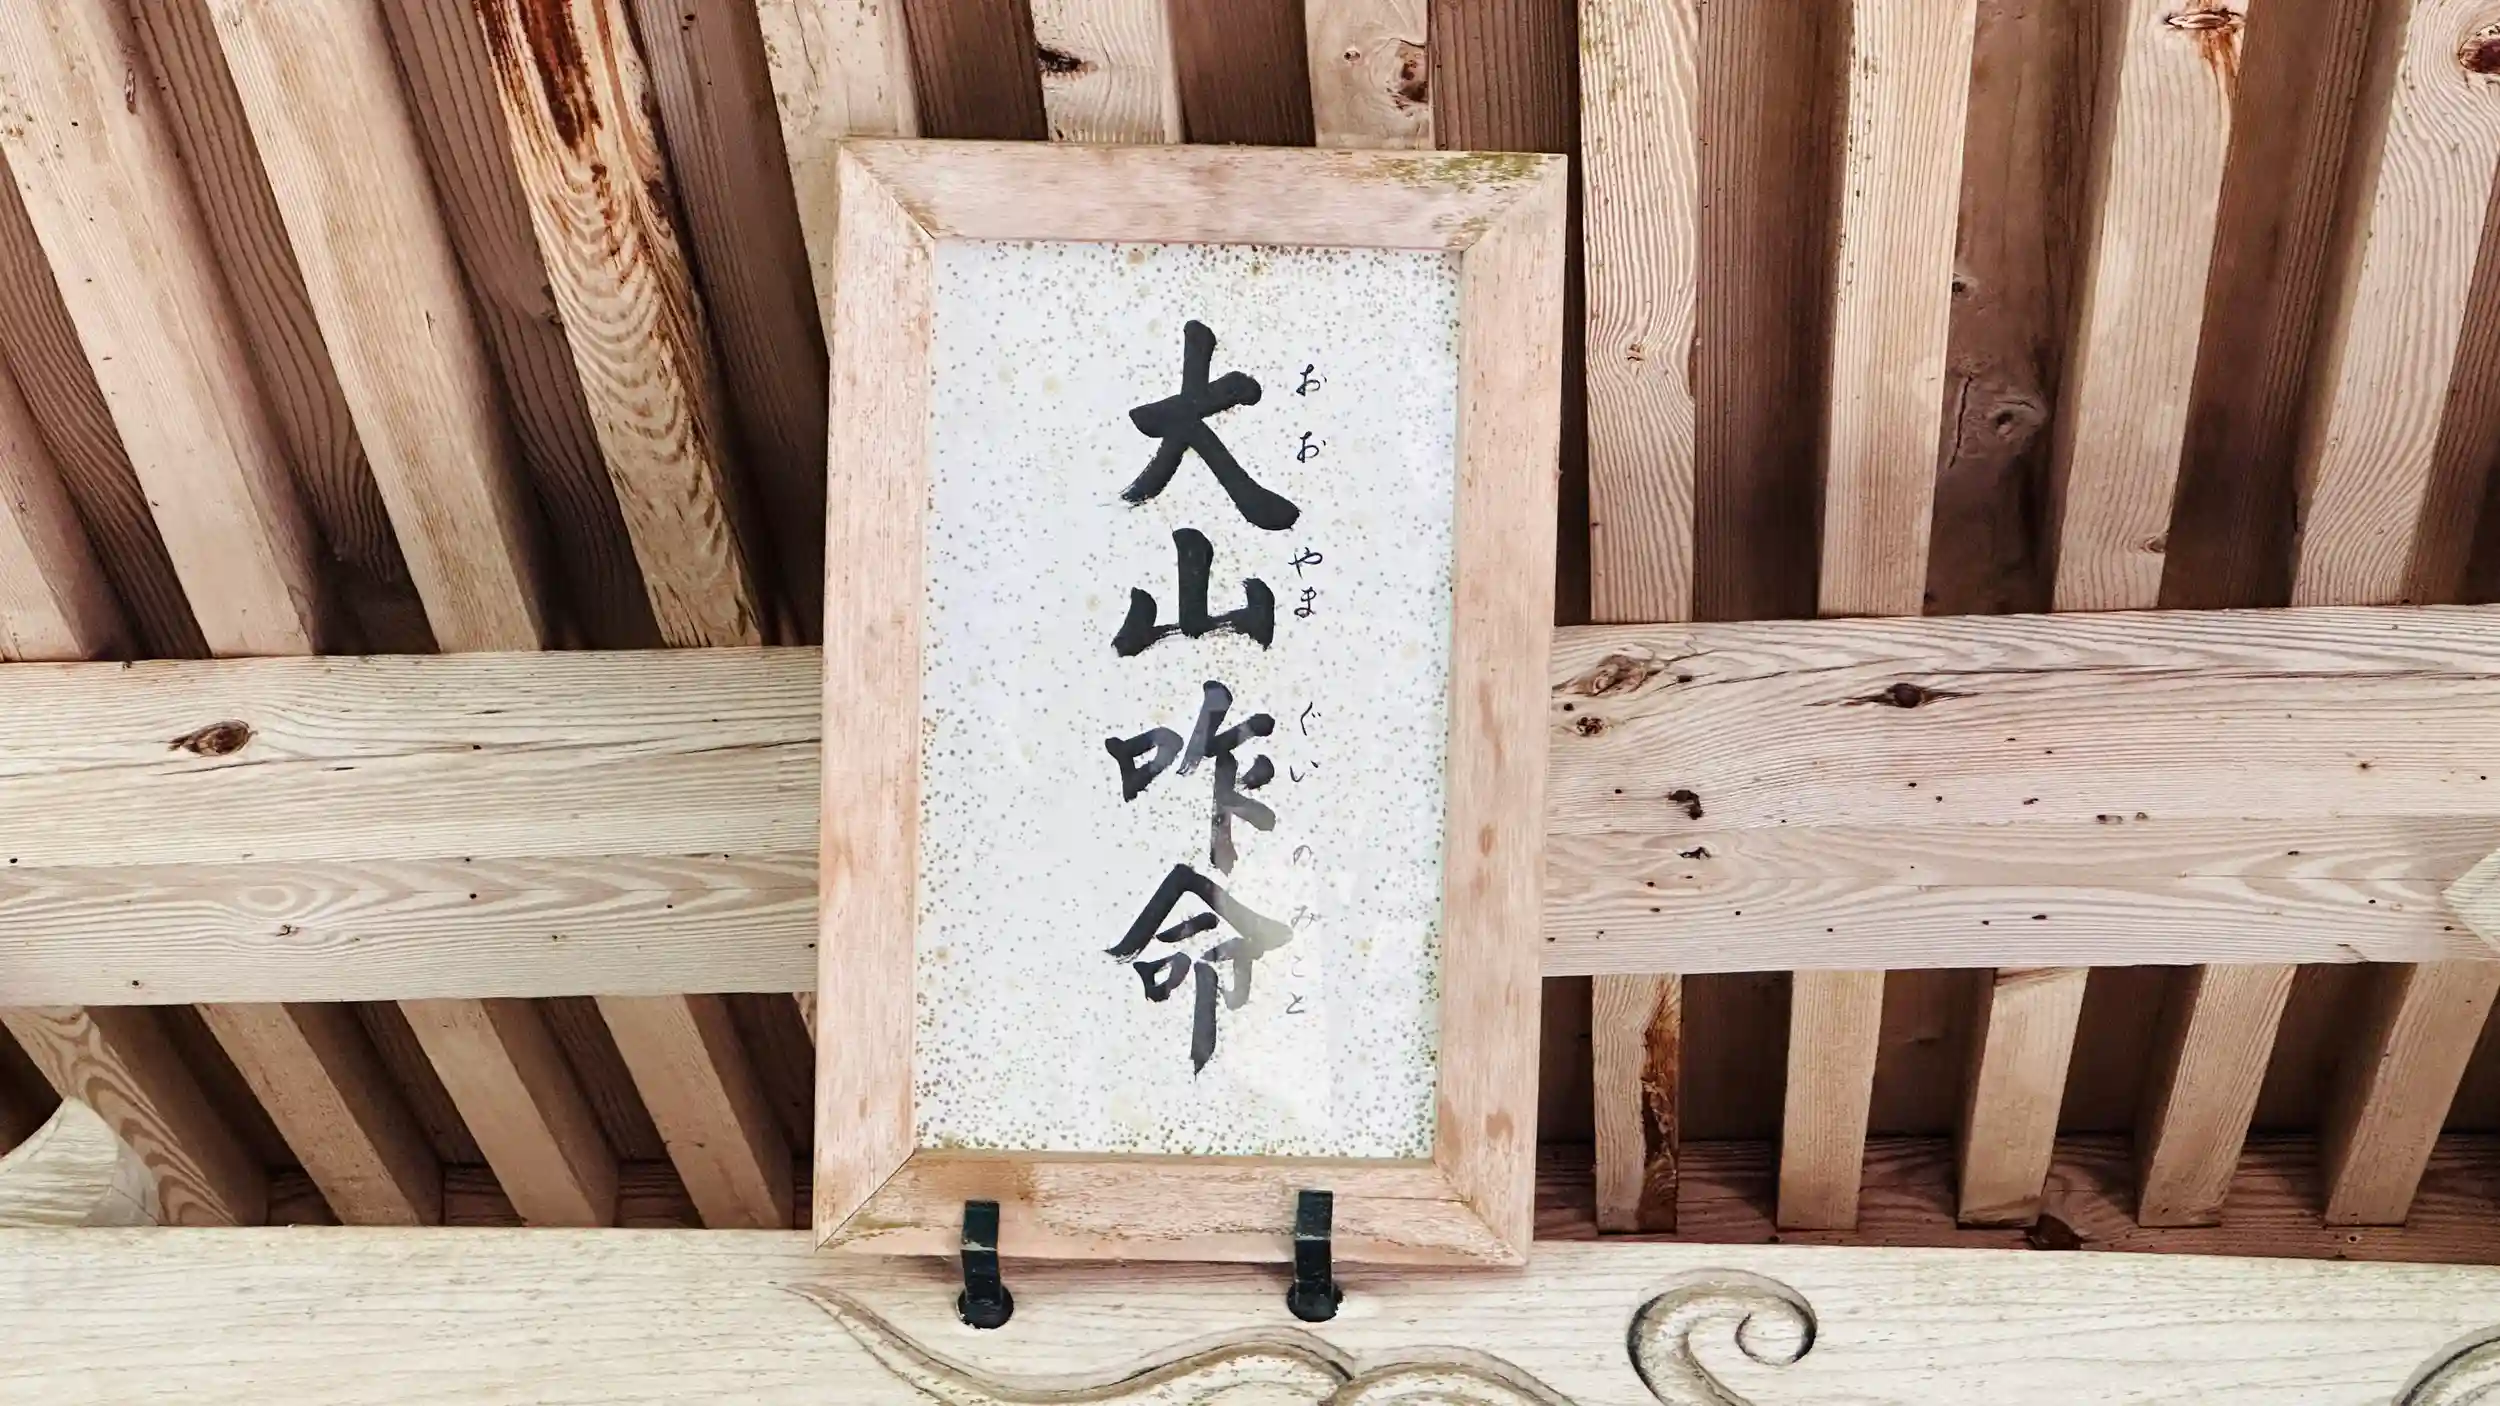 大山咋命
おおやまぐいのみこと